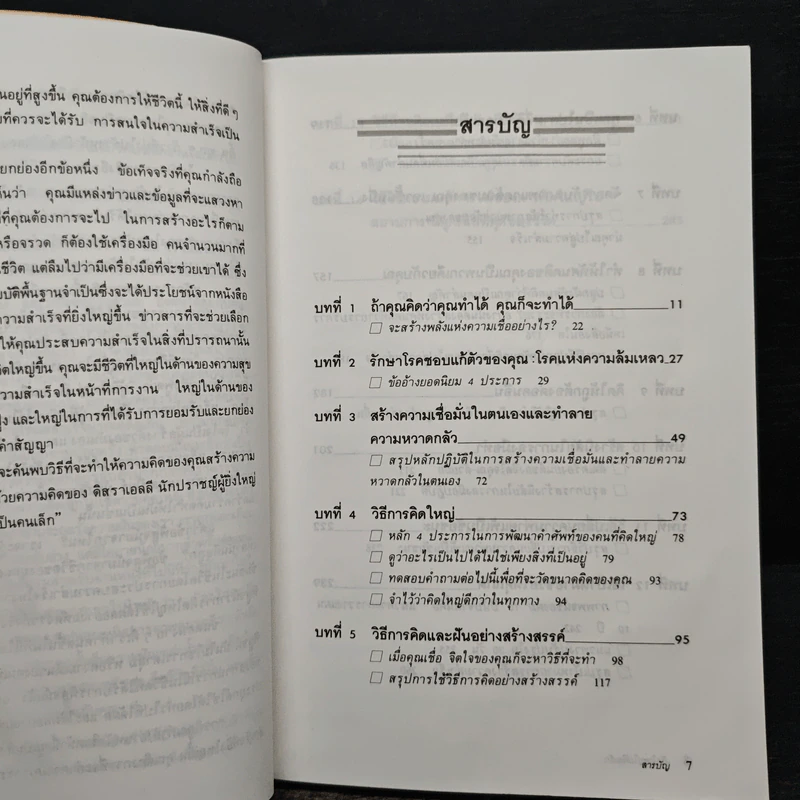 นอยู่ที่สูงขึ้น คุณต้องการให้ชีวิตนี้ ให้สิ่งที่ดีๆ
ยที่ควรจะได้รับ การสนใจในความสำเร็จเป็น
ยกย่องอีกข้อหนึ่ง ข้อเท็จจริงที่คุณกำลังถือ
ห็นว่า คุณมีแหล่งข่าวและข้อมูลที่จะแสวงหา
ที่คุณต้องการจะไป ในการสร้างอะไรก็ตาม
หรือจรวด ก็ต้องใช้เครื่องมือ คนจำนวนมากที่
ชีวิต แต่ลืมไปว่ามีเครื่องมือที่จะช่วยเขาได้ ซึ่ง
มบัติพื้นฐานจำเป็นซึ่งจะได้ประโยชน์จากหนังสือ
ความสำเร็จที่ยิ่งใหญ่ขึ้น ข่าวสารที่จะช่วยเลือก
ให้คุณประสบความสำเร็จในสิ่งที่ปรารถนานั้น
ิดใหญ่ขึ้น คุณจะมีชีวิตที่ใหญ่ในด้านของความสุข
วามสำเร็จในหน้าที่การงาน ใหญ่ในด้านของ
ง และใหญ่ในการที่ได้รับการยอมรับและยกย่อง
คำสัญญา
จะค้นพบวิธีที่จะทำให้ความคิดของคุณสร้างความ
ด้วยความคิดของ ดิสราเอลลี นักปราชญ์ผู้ยิ่งใหญ่
เป็นคนเล็ก”
สารบัญ
บทที่ 1 ถ้าคุณคิดว่าคุณทำได้ คุณก็จะทำได้ 11
จะสร้างพลังแห่งความเชื่ออย่างไร? 22
บทที่ 2 รักษาโรคชอบแก้ตัวของคุณ :โรคแห่งความล้มเหลว 27
ข้ออ้างยอดนิยม 4 ประการ 29
บทที่ 3 สร้างความเชื่อมั่นในตนเองและทำลาย
ความหวาดกลัว 49
สรุปหลักปฏิบัติในการสร้างความเชื่อมั่นและทำลายความ
หวาดกลัวในตนเอง 72
บทที่ 4 วิธีการคิดใหญ่ 73
หลัก 4 ประการในการพัฒนาคำศัพท์ของคนที่คิดใหญ่ 78
ดูว่าอะไรเป็นไปได้ไม่ใช่เพียงสิ่งที่เป็นอยู่ 79
ทดสอบคำถามต่อไปนี้เพื่อที่จะวัดขนาดคิดของคุณ 93
จำไว้ว่าคิดใหญ่ดีกว่าในทุกทาง 94
บทที่ 5 วิธีการคิดและฝันอย่างสร้างสรรค์ 95
เมื่อคุณเชื่อ จิตใจของคุณก็จะหาวิธีที่จะทำ 98
สรุปการใช้วิธีการคิดอย่างสร้างสรรค์ 117
สารบัญ 7